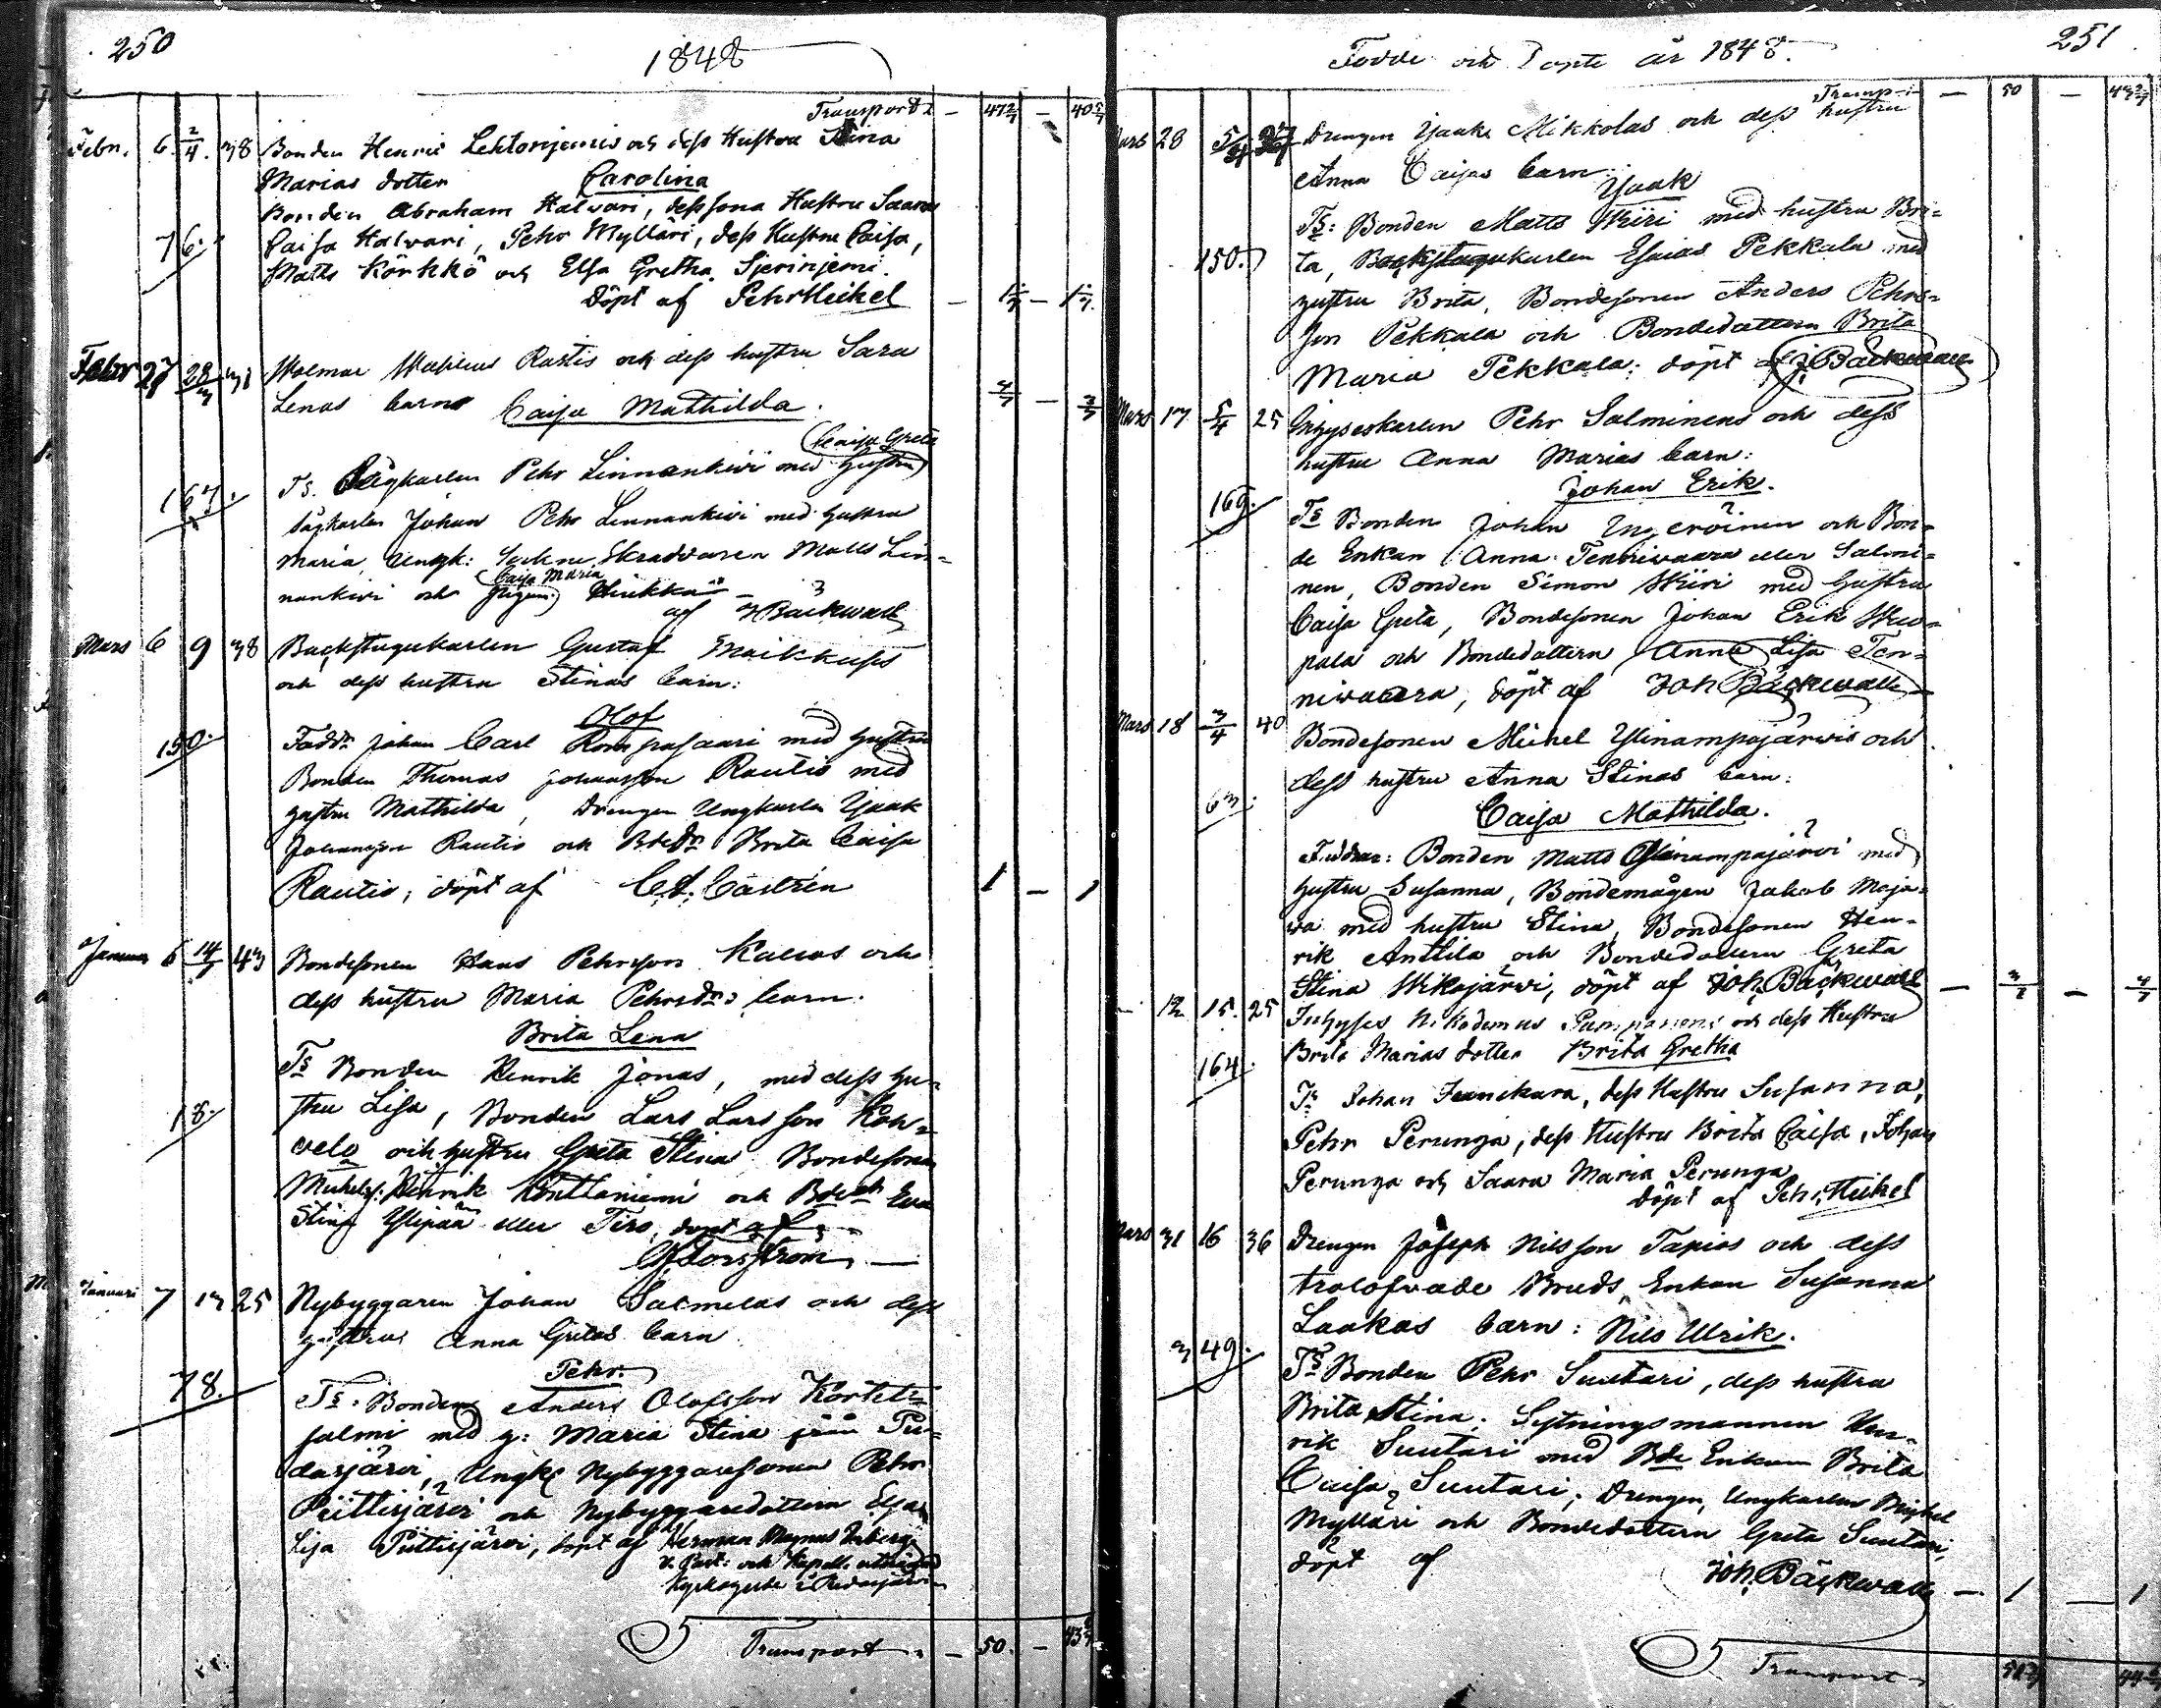 250
1848
Transport - 47 2/7 - 40 5/7
Febr. 6. 2/4. 38 Bonden Henric Lehtoniemis och dess Hustru Stina
Marias dotter Carolina
Bonden Abraham Halvari, dess sona Hustru Saara
76. Caisa Halvari, Pehr Mylläri, dess Hustru Caisa,
Matts Körkkö och Elsa Gretha Sjerinjemi.
döpt af Pehr Heikel
Febr 27 28/3 31 Wolmar Rautis och dess hustru Sara
Lenas barn Caisa Mathilda.
Caisa Greta
167. Ts. Pehr Linnankivi med hustru
Johan Pehr Linnankivi med hustru
Maria, Ungk: Matts Lin=
Caisa Maria
nankivi och pigan Hiukka
af J Bäckwall
Mars 6 9 38 Backstugukarlen Gustaf
och dess hustru Stinas barn:
Olof
150. Faddr Johan Carl Kompasaari med hustru
Bonden Thomas Johansson Rautio med
hustru Mathilda, Drengen Ungkarlen Isaak
Johansson Rautio och Bdedr Brita Caisa
Rautio, döpt af C.A. Castrén 1 - 1
Januar 6 14/3 43 Bondesonen Hans Pehrsson Kallas och
dess hustru Maria Pehrsdrs barn.
Brita Lena
Ts Bonden Henrik Jonas, med dess hu=
18. stru Lisa, Bonden Lars Larsson Kok=
velo och hustru Greta Stina Bondesonen
Michelss. Henrik Konttaniemi och Bdedr Eva
Stina Ylipää eller Tiro, döpt af
Januari 7 13 25 Nybyggaren Johan Salmelas och dess
hustrus Anna Gretas barn
Pehr.
78. Ts. Bonden Anders Olofsson Kortet=
salmi med h: Maria Stina från Pu=
dasjärvi, Ungk Nybyggaresonen Pehr
Piittisjärvi och Nybyggaredottern Elsa
Lisa Piittisjärvi, döpt af Herman Magnus
V. Past: och Kapell.
Transport - 50. -
251
Födde och Döpte år 1848.
Transp - 50 -
Mars 28 Drengen Isaak Mikkolas och dess hustru
Anna Caisas barn
Isaak
Ts: Bonden Matts Wiiri med hustru Bri=
150. ta, Backstugukarlen Esaias Pekkala med
hustru Brita, Bondesonen Anders Pehrs=
son Pekkala och Bondedottern Brita
Maria Pekkala: döpt af J. Bäckwall
Mars 17 5/4 25 Inhyseskarlen Pehr Salminens och dess
hustru Anna Marias barn:
Johan Erik.
169. Ts Bonden Johan och Bon=
de Enkan Anna Tennivaara eller Salmi=
nen, Bonden Simon Wiiri med hustru
Caisa Greta, Bondesonen Johan Erik
pala och Bondedottern Anna Lisa Ten=
nivaara, döpt af Joh Bäckwall
Mars 18 3/4 40 Bondesonen Michel Ylinampajärwis och
dess hustru Anna Stinas barn:
63. Caisa Mathilda.
Faddrar: Bonden Matts Ylinampajärvi med
hustru Susanna, Bondemågen Jakob Maja=
va med hustru Stina, Bondesonen Hen=
rik Anttila och Bondedottern Greta
Stina Wikajärvi, döpt af Joh. Bäckwall
- 12 15. 25 Inhyses Nikodemus Pumpanens och dess Hustru
164. Brita Marias dotter Brita Gretha
Ts Johan, dess Hustru Susanna,
Pehr Perunga, dess Hustru Brita Caisa, Johan
Perunga och Saara Maria Perunga
döpt af Pehr Heikel
Mars 31 16 36 Drengen Joseph Nilsson Tapios och dess
trolofvade Bruds Enkan Susanna
Laakas barn: Nils Ulrik.
349. Ts Bonden Pehr Suutari, dess hustru
Brita Stina. Sytningsmannen Hen=
rik Suutari med Bde Enkan Brita
Caisa Suutari, Drengen, Ungkarlen Michel
Mylläri och Bondedottern Greta Suutari,
döpt af Joh. Bäckwall - 1 - 1
Transport